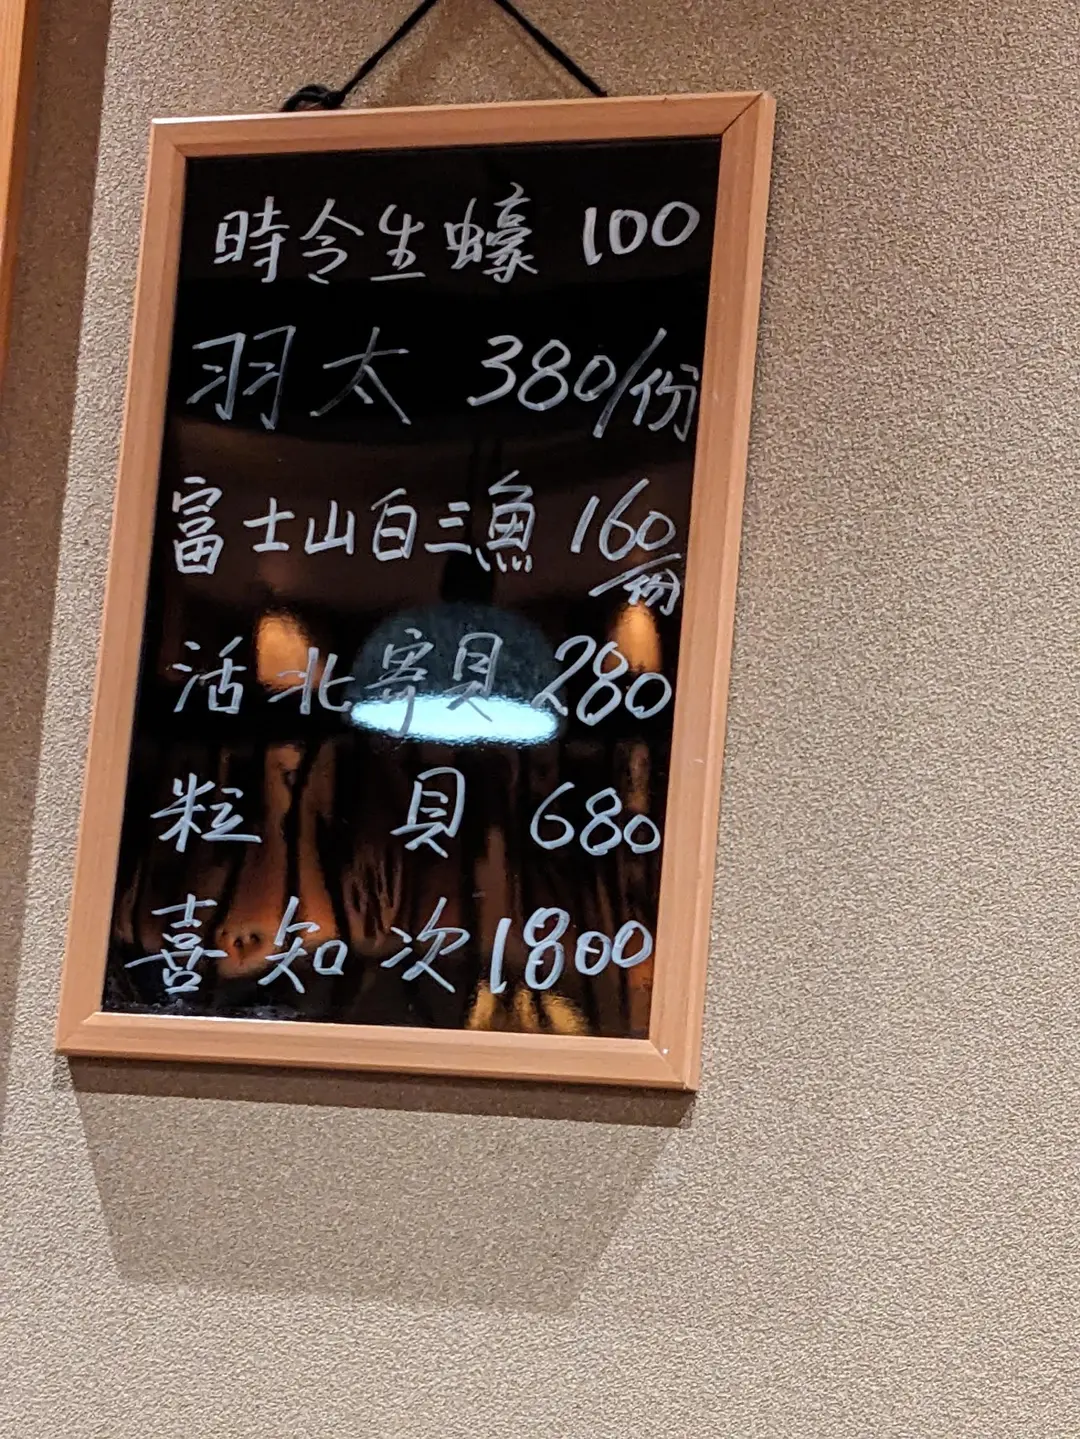 時令生蠔 100
羽太 380/份
富士山白三魚 160
/份
活北寄貝 280
粒 貝 680
喜知次 1800